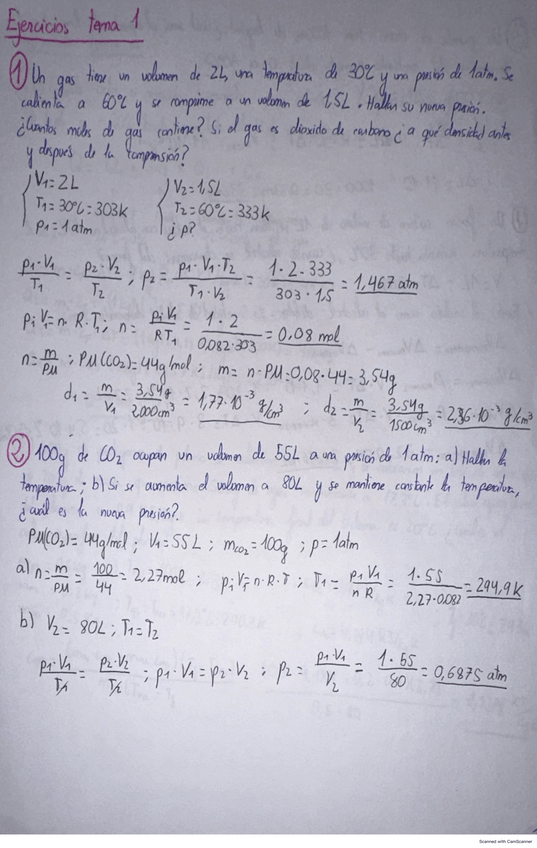 Ejercicios tema 1
① Un gas tiene un volumen de 2L, una temperatura de 30°C y una presión de 1atm. Se
calienta a 60°C y se comprime a un volumen de 1,5L. Hallar su nueva presión.
¿Cuantos moles de gas contiene? Si el gas es dioxido de carbono ¿a qué densidad antes
y después de la compresión?
V1=2L V2=1,5L
T1=30°C=303K T2=60°C=333K
p1=1atm ¿p?
p1·V1/T1 = p2·V2/T2 ; p2 = p1·V1·T2/T1·V2 = 1·2·333/303·1,5 = 1,467 atm
p1V1=n·R·T1 ; n = p1V1/RT1 = 1·2/0,082·303 = 0,08 mol
n=m/PM ; PM(CO2)=44g/mol ; m=n·PM=0,08·44=3,54g
d1=m/V1=3,54g/2000cm³=1,77·10⁻³ g/cm³ ; d2=m/V2=3,54g/1500cm³=2,36·10⁻³ g/cm³
② 100g de CO2 ocupan un volumen de 55L a una presión de 1atm: a) Hallar la
temperatura; b) Si se aumenta el volumen a 80L y se mantiene constante la temperatura,
¿cuál es la nueva presión?
PM(CO2)=44g/mol ; V1=55L ; mCO2=100g ; p=1atm
a) n=m/PM=100/44=2,27mol ; p1V1=n·R·T ; T1=p1V1/nR=1·55/2,27·0,082=294,9K
b) V2=80L ; T1=T2
p1·V1/T1 = p2·V2/T2 ; p1·V1=p2·V2 ; p2=p1·V1/V2=1·55/80=0,6875 atm
Scanned with CamScanner